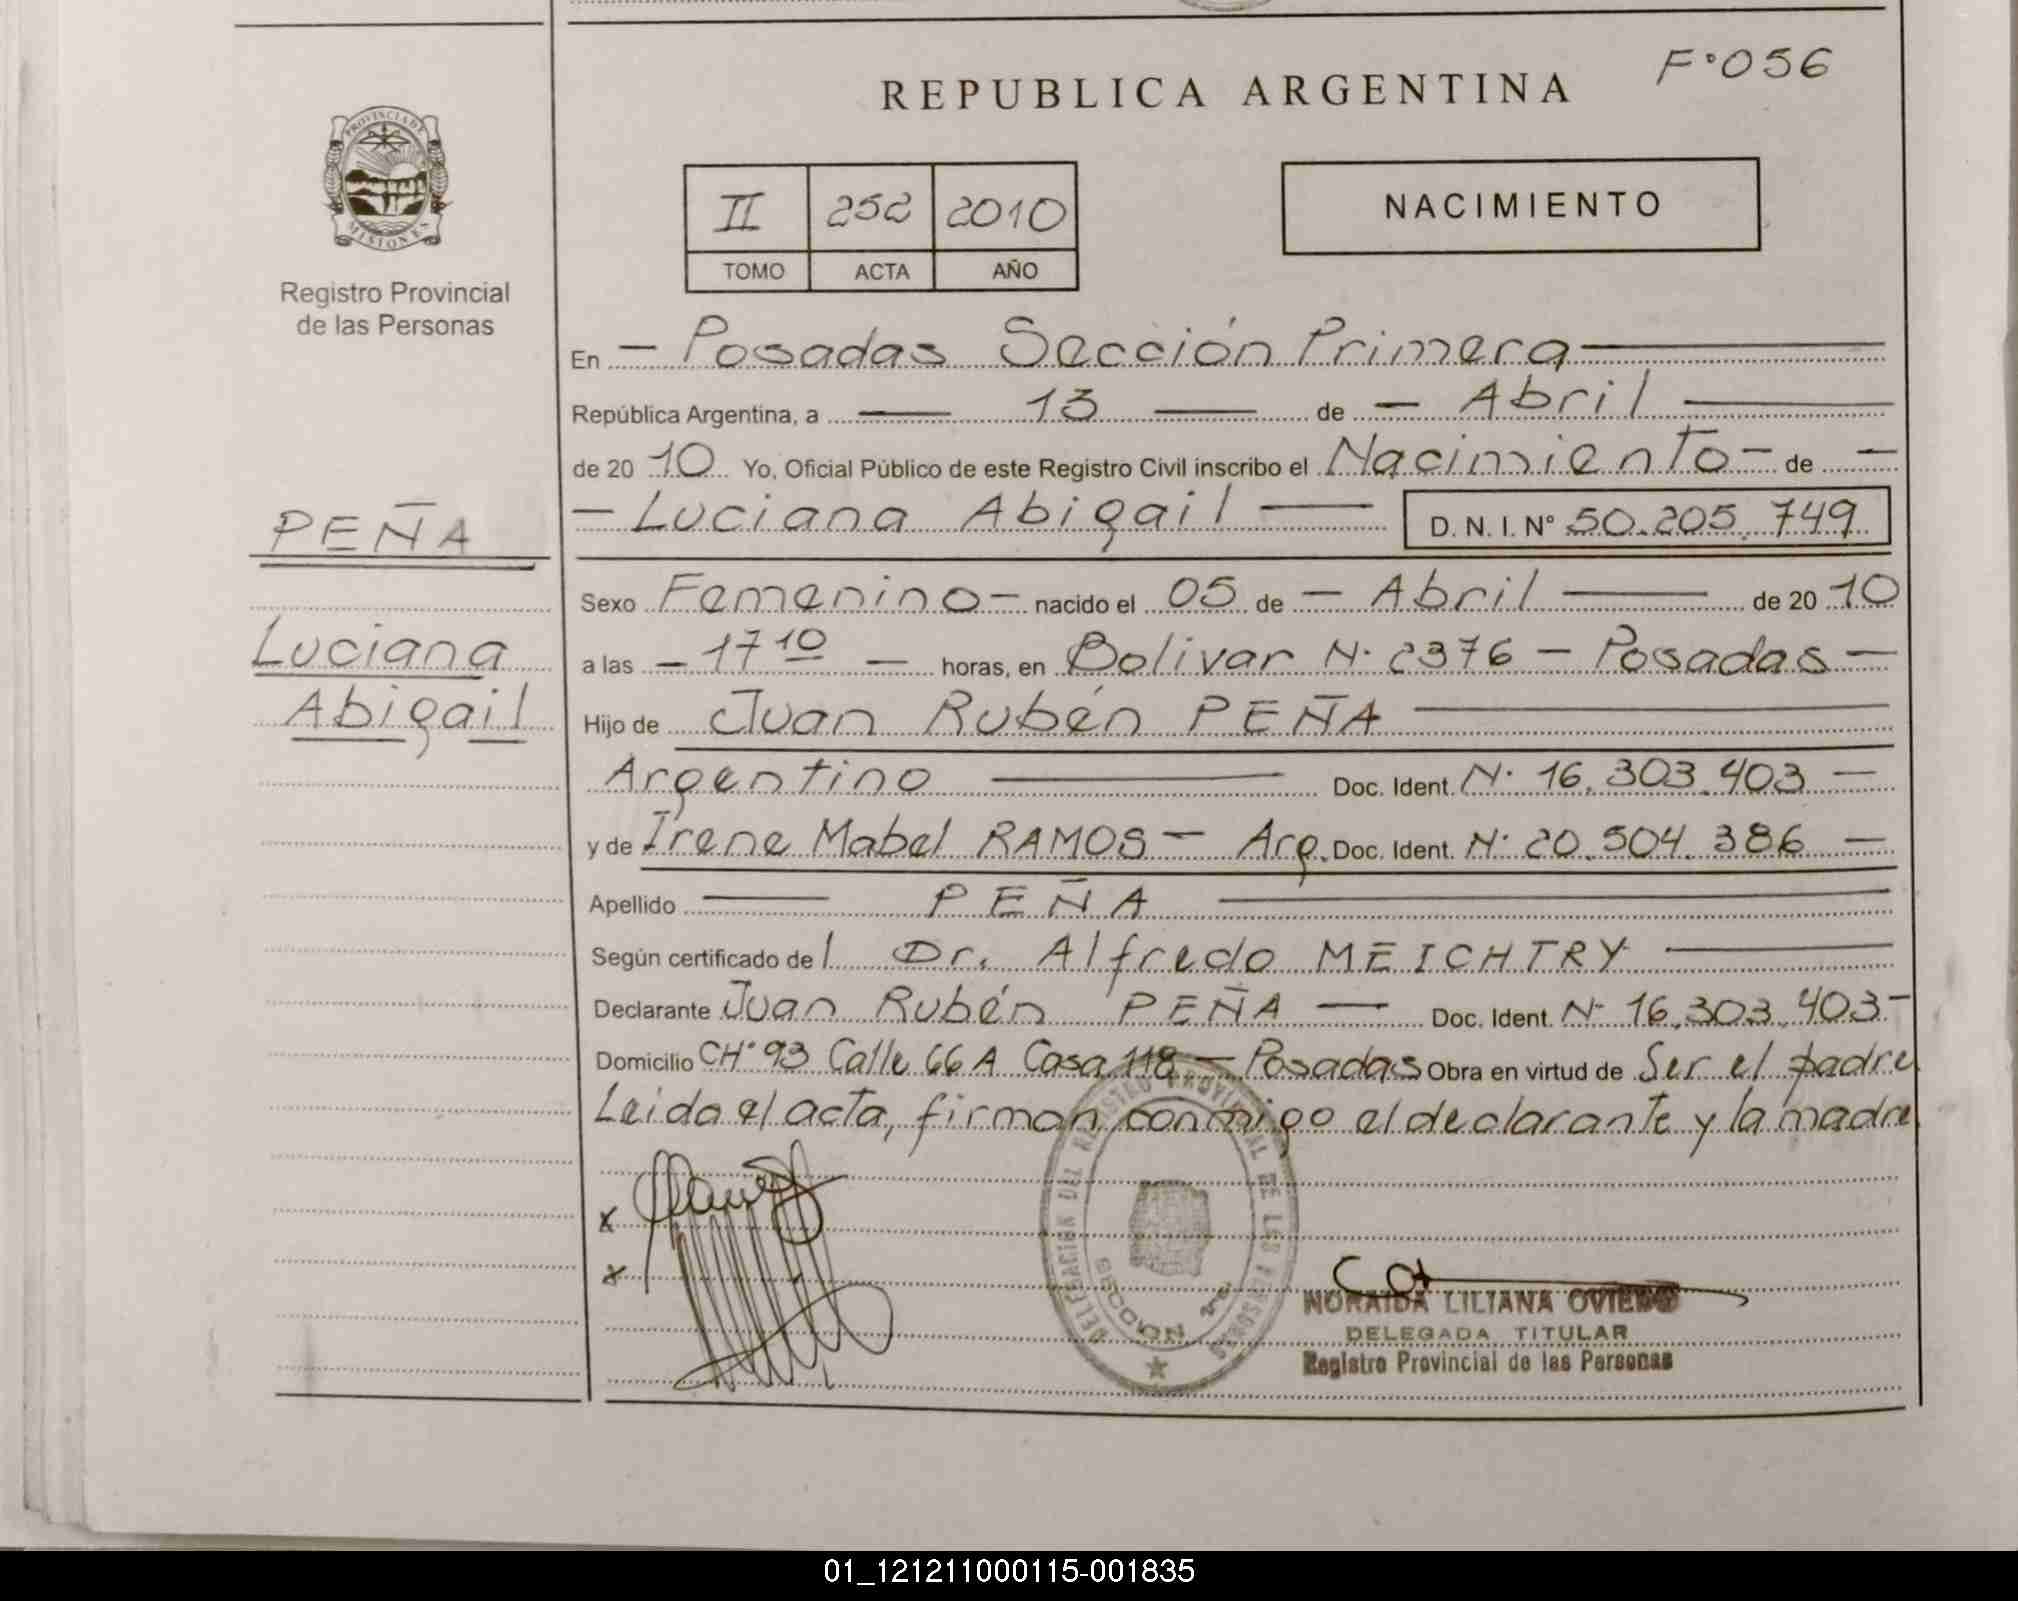 F°056
REPUBLICA ARGENTINA
PROVINCIA DE
MISIONES
Registro Provincial
de las Personas
II 252 2010
TOMO ACTA AÑO
NACIMIENTO
En – Posadas Sección Primera
República Argentina, a — 13 — de – Abril
de 20 10 Yo, Oficial Público de este Registro Civil inscribo el Nacimiento – de –
– Luciana Abigail — D. N. I. N° 50.205.749
PEÑA
Luciana
Abigail
Sexo Femenino – nacido el 05 de – Abril — de 20 10
a las – 17 10 – horas, en Bolivar N° 2376 – Posadas –
Hijo de Juan Rubén PEÑA
Argentino — Doc. Ident. N° 16.303.403 –
y de Irene Mabel RAMOS – Arg. Doc. Ident. N° 20.504.386 –
Apellido — PEÑA
Según certificado de l Dr. Alfredo MEICHTRY
Declarante Juan Rubén PEÑA — Doc. Ident. N° 16.303.403 –
Domicilio CH° 93 Calle 66 A Casa 118 – Posadas Obra en virtud de Ser el padre
Leida el acta, firman conmigo el declarante y la madre
x
x
DELEGACION DEL REGISTRO PROVINCIAL DE LAS PERSONAS
SECCION
NORAIDA LILIANA OVIEDO
DELEGADA TITULAR
Registro Provincial de las Personas
01_121211000115-001835